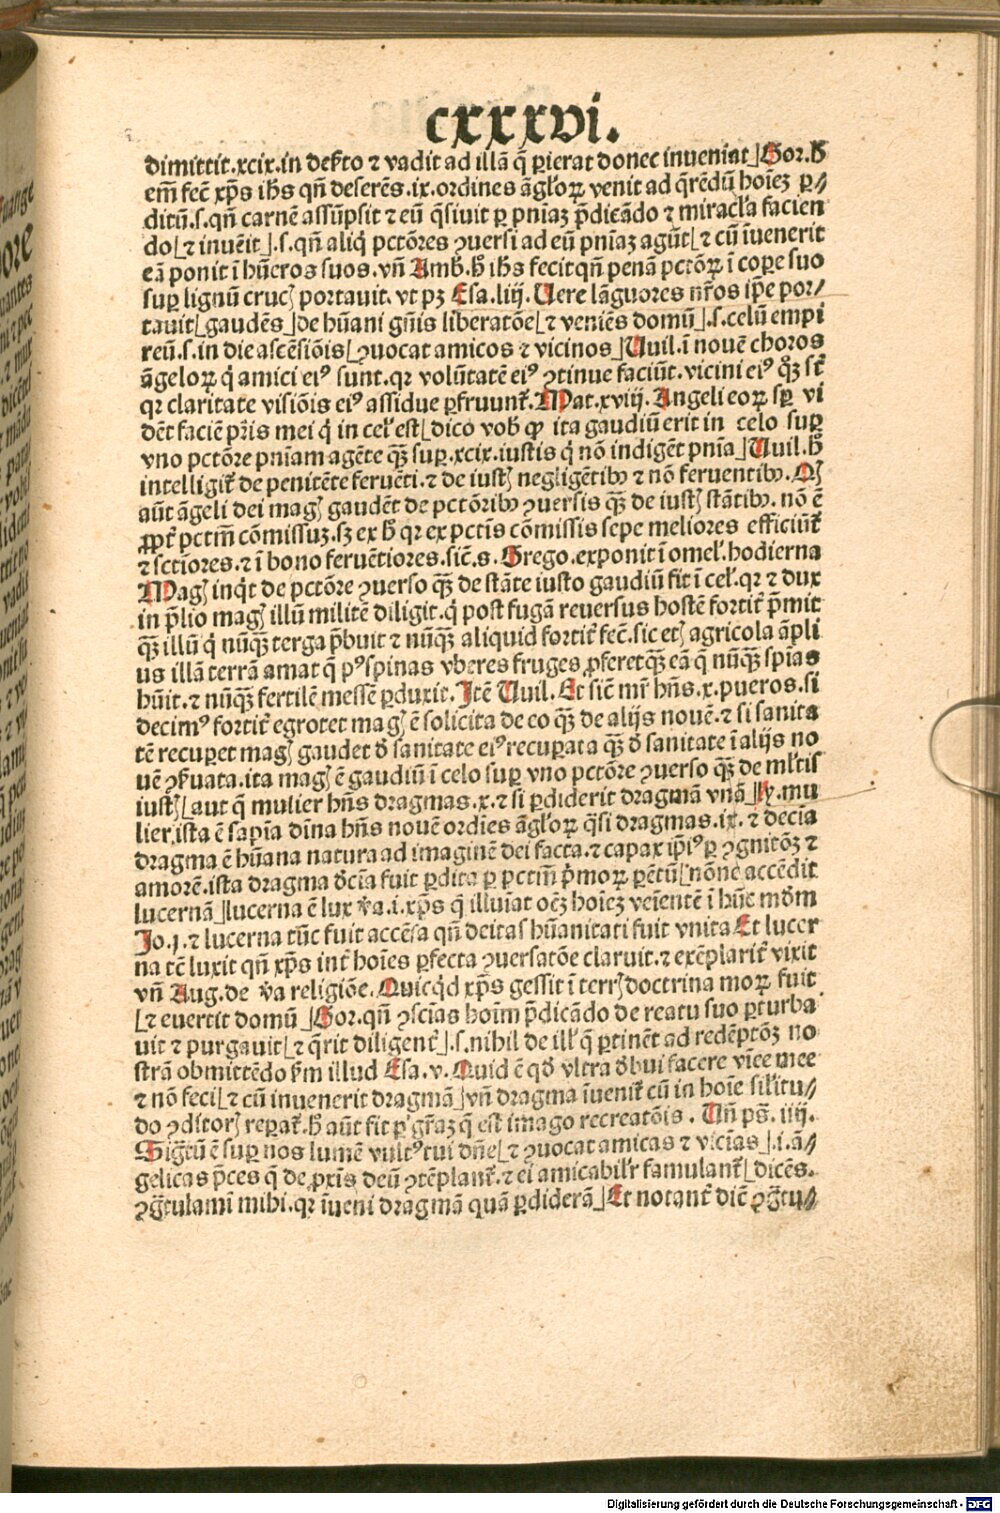 cxxxvi.
dimittit.xcix.in deſerto ⁊ vadit ad illā q̄ ꝑierat donec inueniat⌋Gor.h̄
em̄ fec̄ xp̄s ihs̄ qn̄ deſerēs.ix.ordines āgl̓oꝝ venit ad q̄rēdū hoīeȝ ꝑ⸗
ditū.ſ.qn̄ carnē aſſūpſit ⁊ eū q̄ſiuit ꝑ pn̄iaȝ p̄dicādo ⁊ miracl̓a facien
do⌊⁊ inuēit⌋.ſ.qn̄ aliq̄ pctōres ꝯuerſi ad eū pn̄iaȝ agūt⌊⁊ cū īuenerit
eā ponit ī hūeros ſuos.vn̄ Amb̄.h̄ ihs̄ fecit qn̄ penā pctōꝝ ī corꝑe ſuo
ſuꝑ lignū cruc̄ portauit.vt pȝ Eſa.liij.Uere lāguores nr̄os ip̄e por⸗
tauit⌊gaudēs⌋de hūani gn̄is liberatōe⌊⁊ veniēs domū⌋.ſ.celū empi
reū.ſ.in die aſcēſiōis⌊ꝯuocat amicos ⁊ vicinos⌋Uuil.ī nouē choros
āgeloꝝ q̇ amici eiꝰ ſunt.qr volūtatē eiꝰ ꝯtinue faciūt.vicini eiꝰ q̄ȝ ſt̄
qr claritate viſiōis eiꝰ aſſidue ꝑfruunt̄.Mat.xviij.Angeli eoꝝ ſꝑ vi
dēt faciē pr̄is mei q̇ in cel̓ eſt⌊dico vob̄ ꝙ ita gaudiū erit in celo ſuꝑ
vno pctōre pn̄iam agēte q̄ȝ ſuꝑ.xcix.iuſtis q̇ nō indigēt pn̄ia⌋Uuil.h̄
intelligit̄ de penitēte feruēti.⁊ de iuſt̄ negligētibꝫ ⁊ nō feruentibꝫ.Qȝ
aūt āgeli dei maḡ gaudēt de pctōribꝫ ꝯuerſis q̄ȝ de iuſt̄ ſtātibꝫ.nō ē
ꝓpt̄ pctm̄ cōmiſſuȝ.ſȝ ex h̄ qr ex pctīs cōmiſſis ſepe meliores efficiūt̄
⁊ ſctiores.⁊ ī bono feruētiores.ſic̄.s.Grego.exponit ī omel̓.hodierna
Maḡ inq̇t de pctōre ꝯuerſo q̄ȝ de ſtāte iuſto gaudiū fit ī cel̓.qr ⁊ dux
in p̄lio maḡ illū militē diligit.q̇ poſt fugā reuerſus hoſtē fortit̄ p̄mit
q̄ȝ illū q̇ nūq̄ȝ terga p̄buit ⁊ nūq̄ȝ aliquid fortit̄ fec̄.ſic et̄ agricola āpli
us illā terrā amat q̄ pꝰ ſpinas vberes fruges ꝓferet q̄ȝ eā q̄ nūq̄ȝ ſpīas
hūit.⁊ nūq̄ȝ fertilē meſſē ꝑduxit.Itē Uuil.Et ſic̄ mr̄ hn̄s.x.pueros.ſi
decimꝰ fortit̄ egrotet maḡ ē ſolicita de eo q̄ȝ de alijs nouē.⁊ ſi ſanita
tē recuꝑet maḡ gaudet d̄ ſanitate eiꝰ recuꝑata q̄ȝ d̄ ſanitate ī alijs no
uē ꝯẜuata.ita maḡ ē gaudiū ī celo ſuꝑ vno pctōre ꝯuerſo q̄ȝ de ml̓tis
iuſt̄⌊aut q̄ mulier hn̄s dragmas.x.⁊ ſi ꝑdiderit dragmā vnā⌋Ly.mu
lier.iſta ē ſapīa dīna hn̄s nouē ordīes āgl̓oꝝ q̄ſi dragmas.ix.⁊ decīa
dragma ē hūana natura ad imaginē dei facta.⁊ capax ip̄iꝰ ꝑ ꝯgnitōȝ ⁊
amorē.iſta dragma d̄cīa fuit ꝑdita ꝑ pctm̄ p̄moꝝ parētū⌊nōne accēdit
lucernā⌋lucerna ē lux v̄a.i.xp̄s q̇ illuīat oēȝ hoīeȝ veīentē ī hūc mōm
Jo.j.⁊ lucerna tūc fuit accēſa qn̄ deitas hūanitati fuit vnita Et lucer
na tē luxit qn̄ xp̄s int̄ hoīes ꝑfecta ꝯuerſatōe claruit.⁊ exēplarit̄ vixit
vn̄ Aug.de v̄a religiōe.Quicq̇d xp̄s geſſit ī terr̄ doctrina moꝝ fuit
⌊⁊ euertit domū⌋Gor.qn̄ ꝯſcīas hoīm p̄dicādo de reatu ſuo ꝑturba
uit ⁊ purgauit⌊⁊ q̄rit diligent̄⌋.ſ.nihil de ill̓ q̄ ꝑtinēt ad redēptōȝ no
ſtrā obmittēdo ẜm illud Eſa.v.Quid ē qd̄ vltra d̄bui facere vīee mee
⁊ nō feci⌊⁊ cū inuenerit dragmā⌋vn̄ dragma īuenit̄ cū in hoīe ſil̓itu⸗
do ꝯditor̄ reꝑat̄.h̄ aūt fit ꝑ gr̄aȝ q̄ eſt imago recreatōis.Un̄ pṡ.iiij.
Sig̅tū ē ſuꝑ nos lumē vultꝰ tui dn̄e⌊⁊ ꝯuocat amicas ⁊ vicīas⌋.i.ā⸗
gelicas p̄ces q̄ de ꝓxīs deū ꝯtēplant̄.⁊ ei amicabil̓r famulant̄⌊dicēs.
ꝯg̅tulamī mihi.qr īueni dragmā quā ꝑdiderā⌋Et notant̄ dic̄ ꝯg̅tu⸗
Digitalisierung gefördert durch die Deutsche Forschungsgemeinschaft - DFG